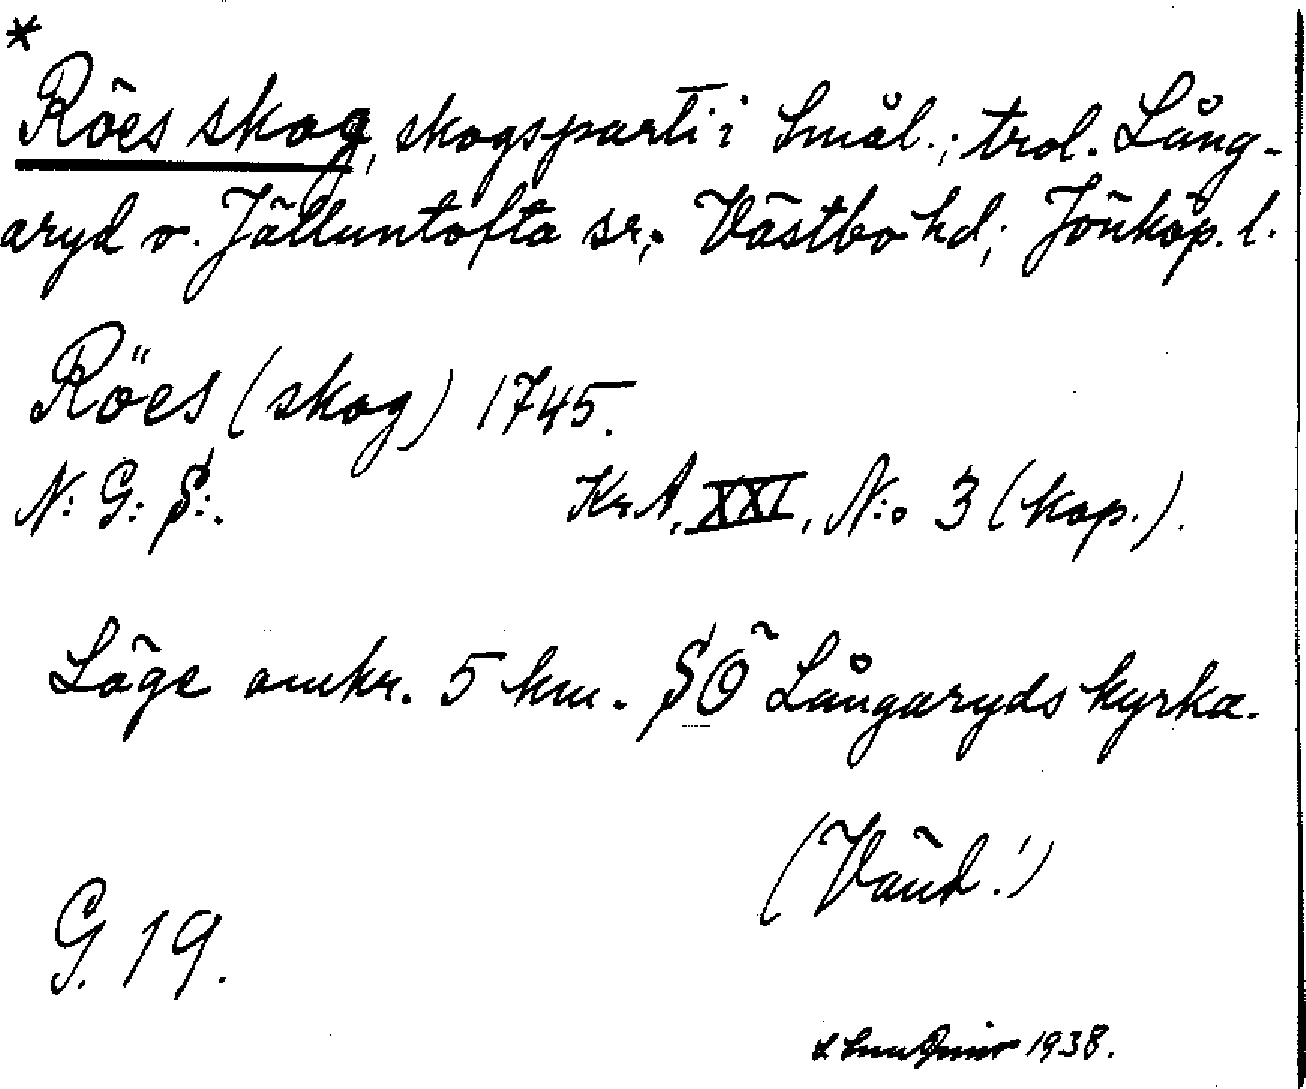 *
Röes skog, skogsparti i Smål.; trol. Lång-
aryd o. Jälluntofta sr; Västbo hd; Jönköp. l.
Röes (skog) 1745.
N: G: S:.
Kr.A. XXI, N:o 3 (kop.).
Läge omkr. 5 km. SÖ Långaryds kyrka.
(Vänd!)
G. 19.
1938.